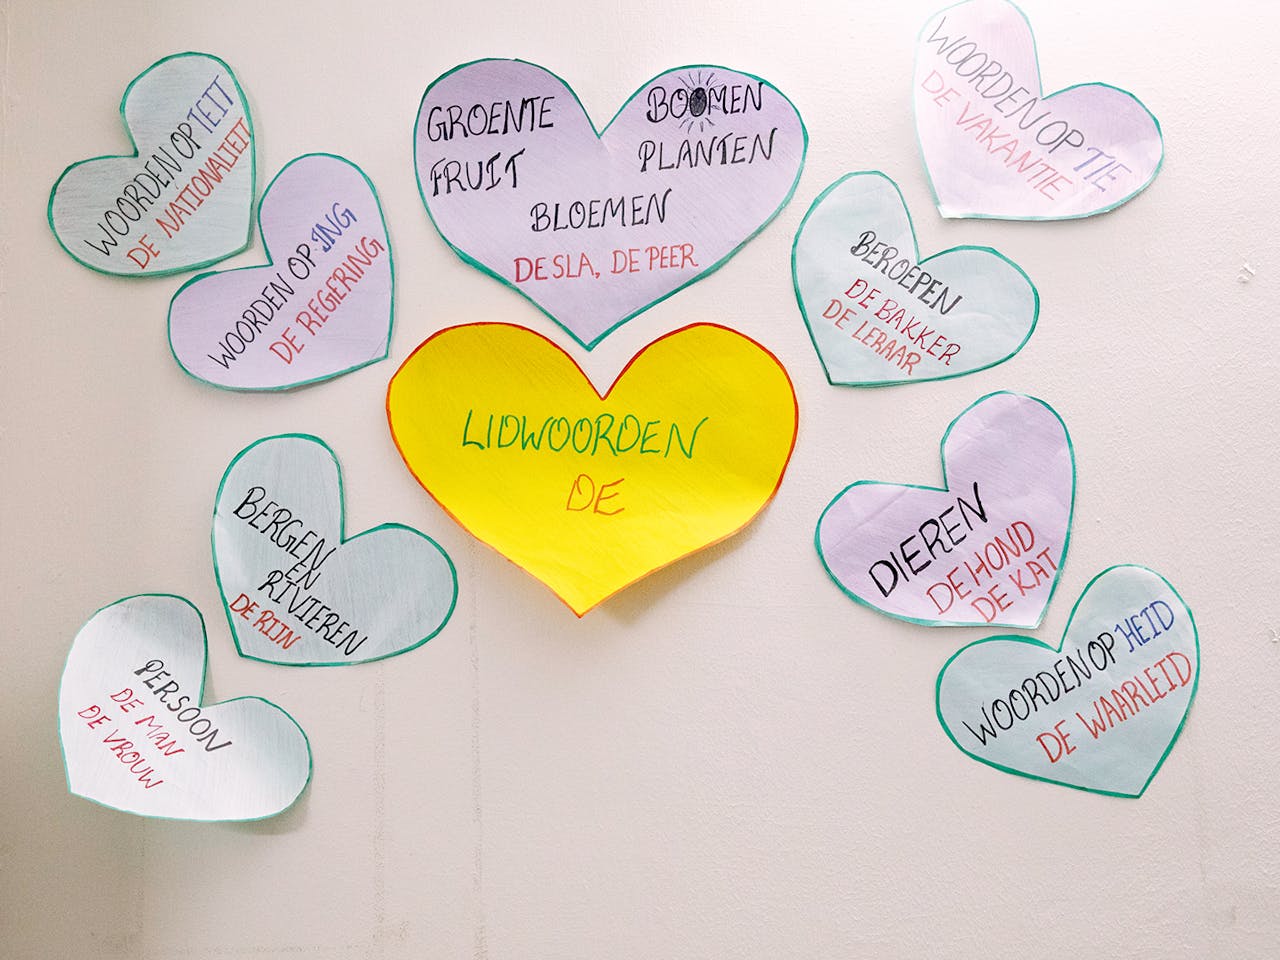 WOORDEN OP TEIT
DE NATIONALITEIT
WOORDEN OP ING
DE REGERING
GROENTE
FRUIT
BOOMEN
PLANTEN
BLOEMEN
DE SLA, DE PEER
WOORDEN OP TIE
DE VAKANTIE
BEROEPEN
DE BAKKER
DE LERAAR
LIDWOORDEN
DE
BERGEN
EN
RIVIEREN
DE RIJN
DIEREN
DE HOND
DE KAT
PERSOON
DE MAN
DE VROUW
WOORDEN OP HEID
DE WAARLEID